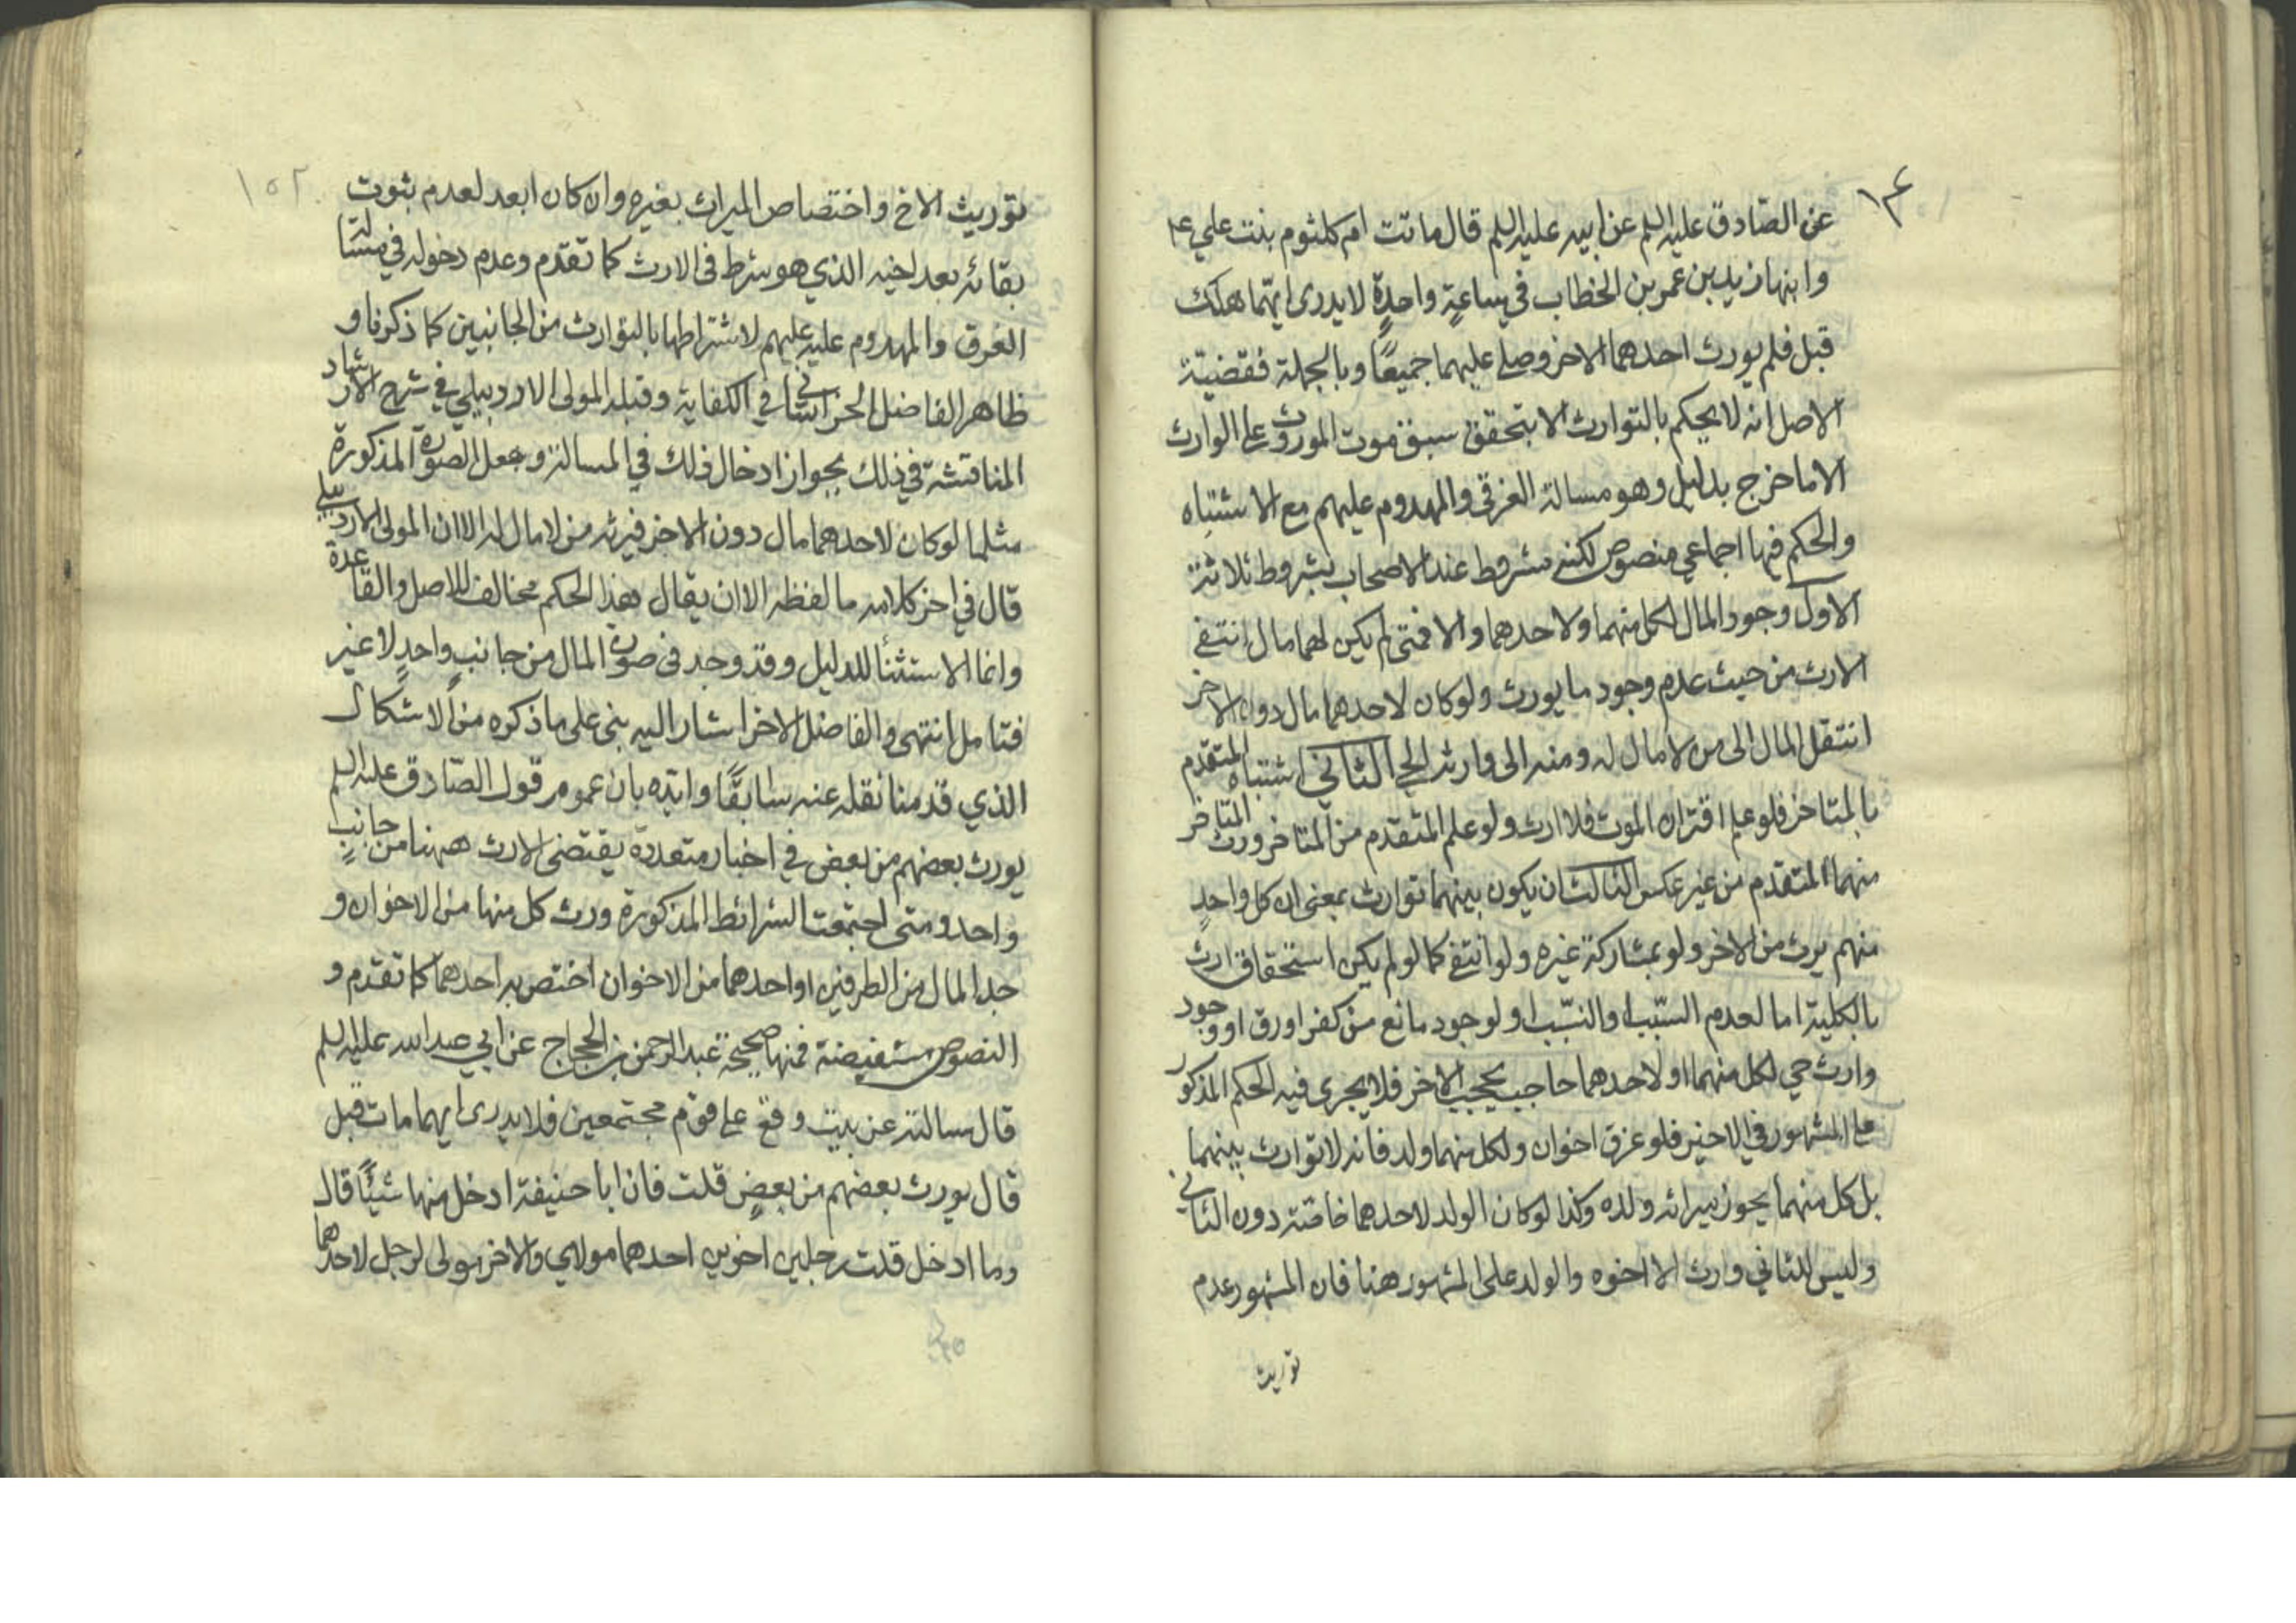 ١٤
عن الصّادق عليه السلم عن ابيه عليه السلم قال ماتت ام كلثوم بنت علي ع
وابنها زيد بن عمر بن الخطاب في ساعةٍ واحدةٍ لا يدرى ايّهما هلك
قبل فلم يورث احدهما الاخر وصلى عليهما جميعًا وبالجملة فقضيّة
الاصل انه لا يحكم بالتوارث الا بتحقق سبق موت المورث على الوارث
الا ما خرج بدليل وهو مسالة الغرقى والمهدوم عليهم مع الاشتباه
والحكم فيها اجماعي منصوص لكنه مشروط عند الاصحاب بشروط ثلاثة
الاول وجود المال لكل منهما ولاحدهما والا فمتى لم يكن لهما مال انتفى
الارث من حيث عدم وجود ما يورث ولو كان لاحدهما مال دون الاخر
انتقل المال الى من لا مال له ومنه الى وارثه الحي الثاني اشتباه المتقدم
بالمتاخر فلو علم اقتران الموت فلا ارث ولو علم المتقدم من المتاخر ورث المتاخر
منهما المتقدم من غير عكس الثالث ان يكون بينهما توارث بمعنى ان كل واحدٍ
منهم يرث من الاخر ولو بمشاركة غيره ولو انتفى كما لو لم يكن استحقاق ارث
بالكلية اما لعدم السّبب والنسّب او لوجود مانع من كفر او رق او وجود
وارث حي لكل منهما او لاحدهما حاجب يحجب الاخر فلا يجرى فيه الحكم المذكور
على المشهور في الاخير فلو غرق اخوان ولكل منهما ولد فانه لا توارث بينهما
بل كل منهما يحوز ميراثه ولده وكذا لو كان الولد لاحدهما خاصة دون الثاني
وليس للثاني وارث الا اخوه والولد على المشهور هنا فان المشهور عدم
توريث
١٥٢
توريث الاخ واختصاص الميراث بغيره وان كان ابعد لعدم ثبوت
بقائه بعد اخيه الذي هو شرط فى الارث كما تقدم وعدم دخوله في مسالة
الغرق والمهدوم عليه عليهم لاشتراطها بالتوارث من الجانبين كما ذكرنا و
ظاهر الفاضل الخراساني في الكفاية وقبله المولى الاردبيلي في شرح الارشاد
المناقشة في ذلك بجواز ادخال ذلك في المسالة وجعل الصورة المذكورة
مثلما لو كان لاحدهما مال دون الاخر فيرثه من لا مال له الا ان المولى الاردبيلي
قال في اخر كلامه ما لفظه الا ان يقال هذا الحكم مخالف للاصل والقاعدة
وانما الاستثنأ للدليل وقد وجد فى صورة المال من جانبٍ واحدٍ لا غير
فتامل انتهى والفاضل الاخر اشار اليه بنى على ما ذكره من الاشكال
الذي قدمنا نقله عنه سابقًا وايّده بان عموم قول الصّادق عليه السلم
يورث بعضهم من بعض في اخبار متعددة يقتضى الارث ههنا من جانبٍ
واحد ومتى اجتمعت الشرائط المذكورة ورث كل منهما من الاخوان و
جد المال من الطرفين او احدهما من الاخوان اختص به احدهما كما تقدم و
النصوص مستفيضة فمنها صحيحة عبد الرحمن بن الحجاج عن ابي عبد الله عليه السلم
قال سالته عن بيت وقع على قوم مجتمعين فلا يدرى ايهما مات قبل
قال يورث بعضهم من بعضٍ قلت فان ابا حنيفة ادخل منها شيئًا قال
وما ادخل قلت رجلين اخوين احدهما مولاي والاخر مولى لرجل لاحدهما